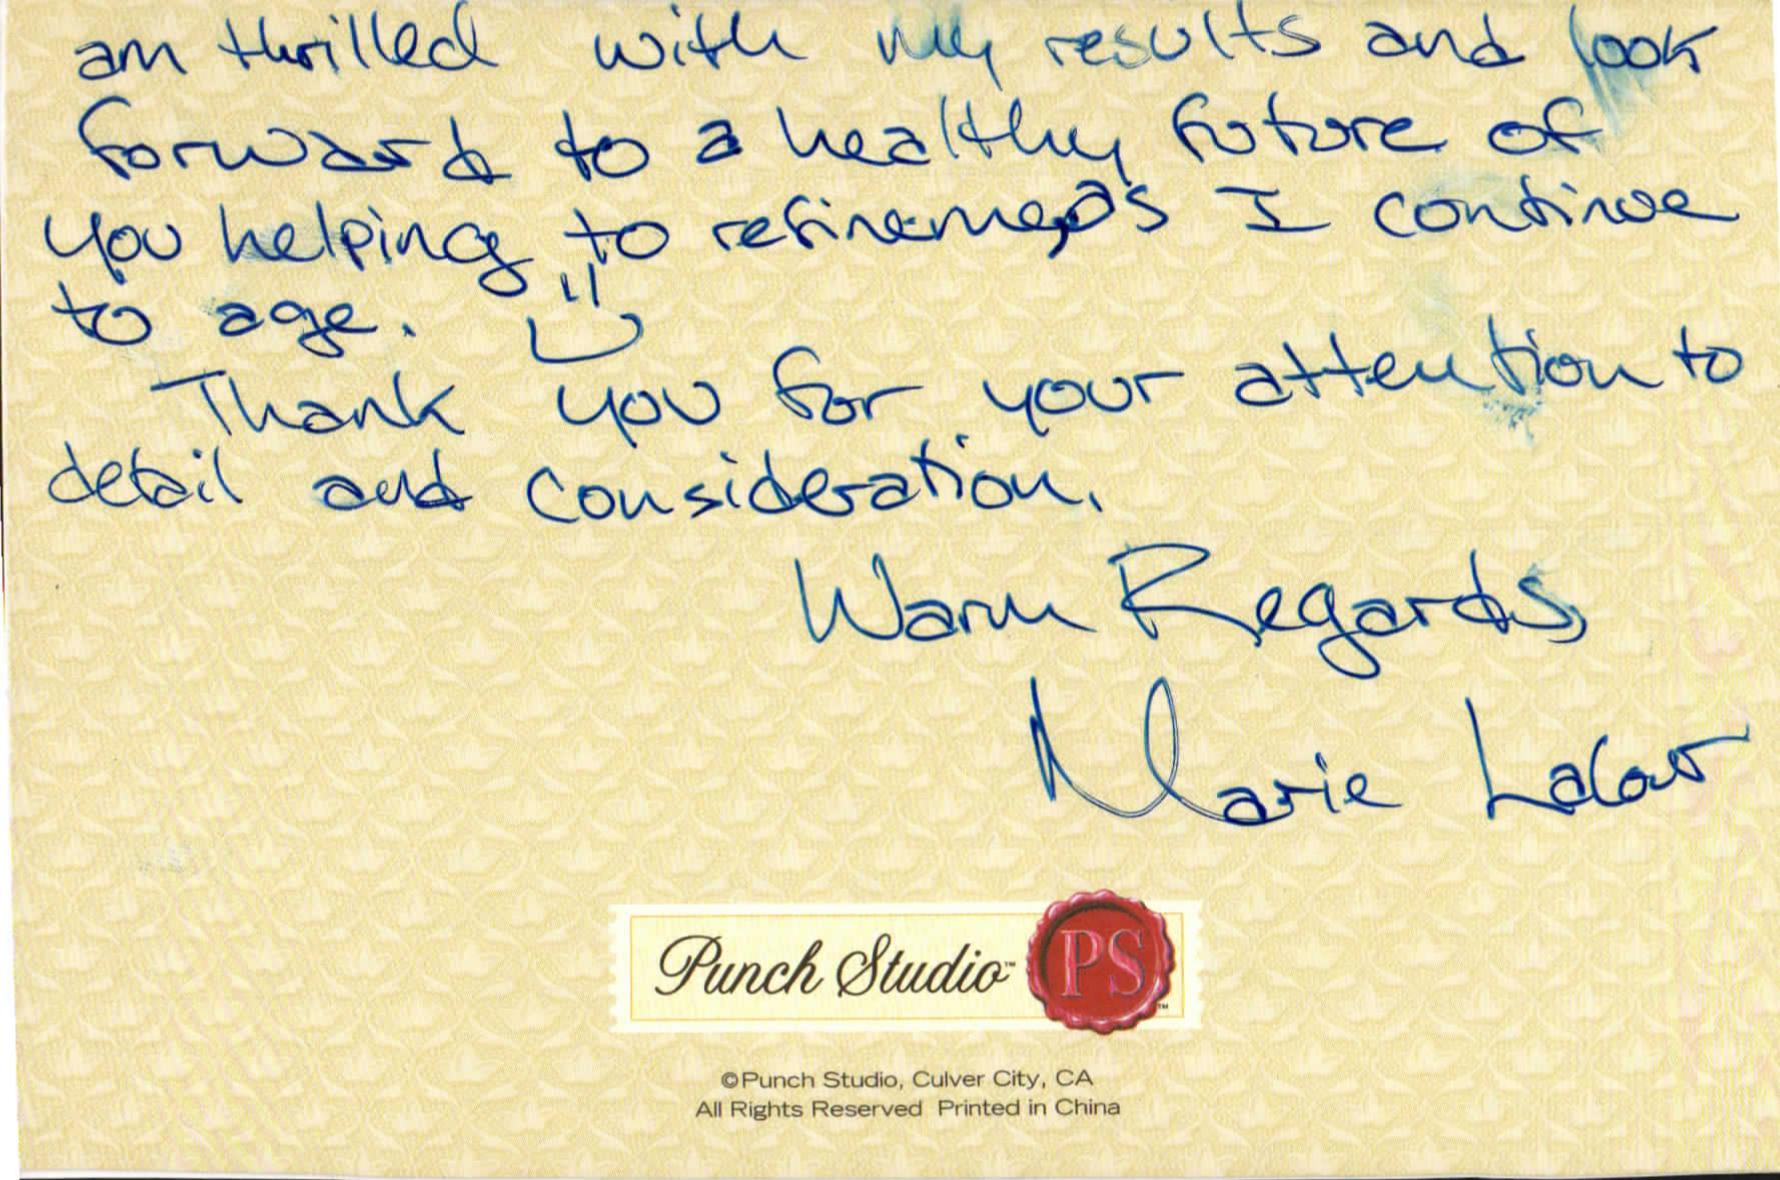 am thrilled with my results and look
forward to a healthy future of
you helping to refinements I continue
to age.
Thank you for your attention to
detail and consideration.
Warm Regards,
Marie
Punch Studio™ PS™
©Punch Studio, Culver City, CA
All Rights Reserved Printed in China